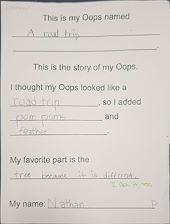 This is my Oops named
A road trip
This is the story of my Oops.
I thought my Oops looked like a
road trip, so I added
pom poms and
feather.
My favorite part is the
tree because it is different.
I like it too
My name: Nathan P